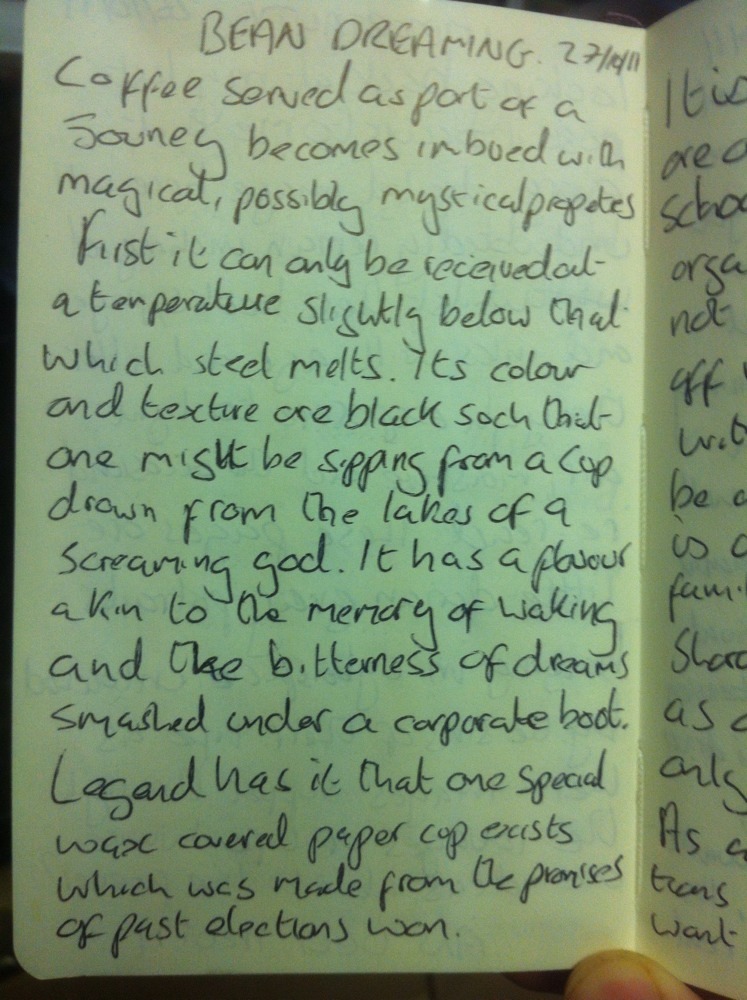 BEAN DREAMING. 27/10/11
Coffee served as part of a
Jouney becomes imbued with
magical, possibly mystical propetes
First it can only be received at
a temperature slightly below that
which steel melts. Its colour
and texture are black such that
one might be sipping from a cup
drawn from the lakes of a
screaming god. It has a flavour
akin to the memory of waking
and the bitterness of dreams
smashed under a corporate boot.
Legend has it that one special
wax covered paper cup exists
which was made from the promises
of past elections won.
It is
are a
schoo
orga
not
off
writ
be a
is a
fami
Shar
as a
only
As a
trans
want